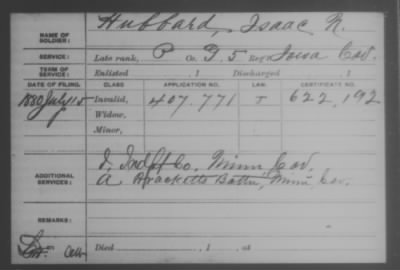 NAME OF SOLDIER: Hubbard, Isaac N.
SERVICE: Late rank, P Co. F, 5 Reg't Iowa Cav.
TERM OF SERVICE: Enlisted , 1 Discharged , 1
DATE OF FILING. CLASS. APPLICATION NO. LAW. CERTIFICATE NO.
1880 July 15 Invalid, 407.771 622,192
Widow,
Minor,
ADDITIONAL SERVICES: Co. Minn Cav.
A Bracketts Battn, Minn Cav.
REMARKS:
Died , 1 , at